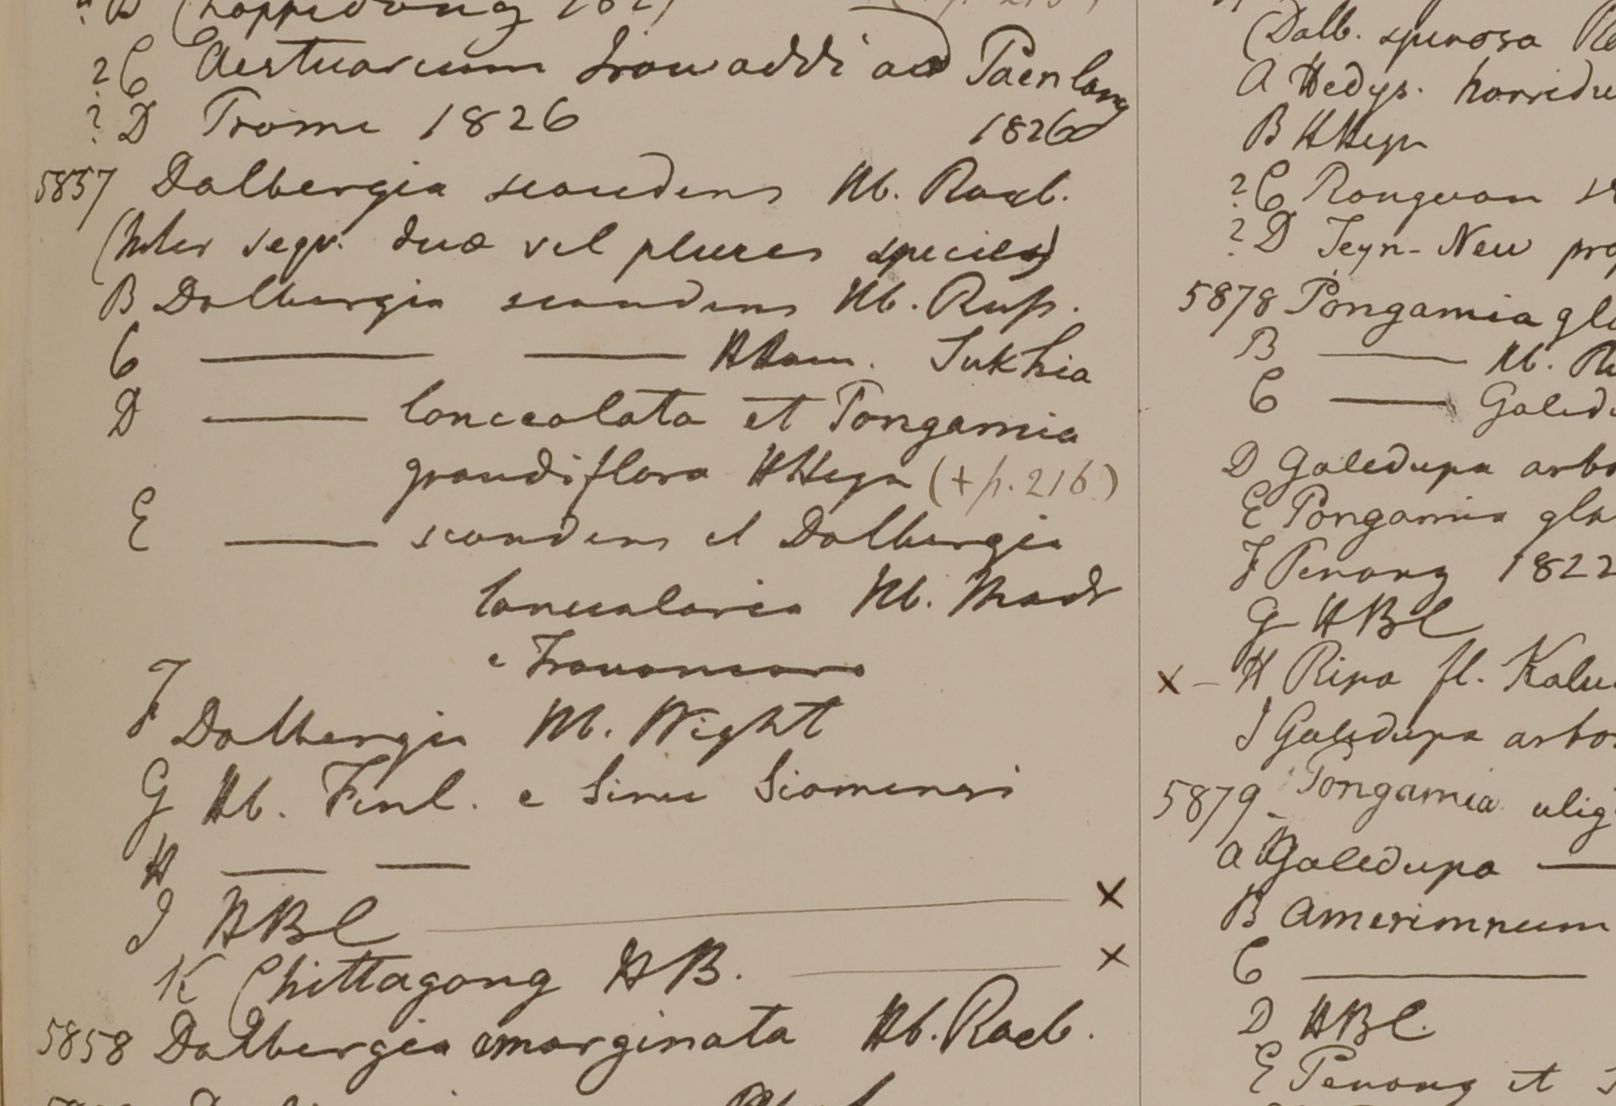 ? B Choppedong 182
? C Aestuarium Irawaddi ad Paenlang
? D Prome 1826 1826
5857 Dalbergia scandens Hb. Roxb.
(Inter sequ. duæ vel plures species)
B Dalbergia scandens Hb. Russ.
C —— —— HHam. Sukhia
D —— lanceolata et Pongamia
grandiflora HHeyn (+ p. 216)
E —— scandens et Dalbergia
lancealaria Hb. Madr
e Travancore
F Dalbergia Hb. Wight
G Hb. Finl. e Sinu Siamensi
H —— ——
I HBC —— ×
K Chittagong HB. —— ×
5858 Dalbergia emarginata Hb. Roxb.
(Dalb. spinosa
A Hedys. horridu
B HHeyn
? C Rongoon
? D Teyn-Neu pro
5878 Pongamia gla
B —— Hb. R
C —— Galedu
D Galedupa arbo
E Pongamia gla
F Penang 1822
G HBC
× – H Ripa fl. Kalu
I Galedupa arbo
5879 Pongamia ulig
A Galedupa ——
B Amerimnum
C ——
D HBC.
E Penang et